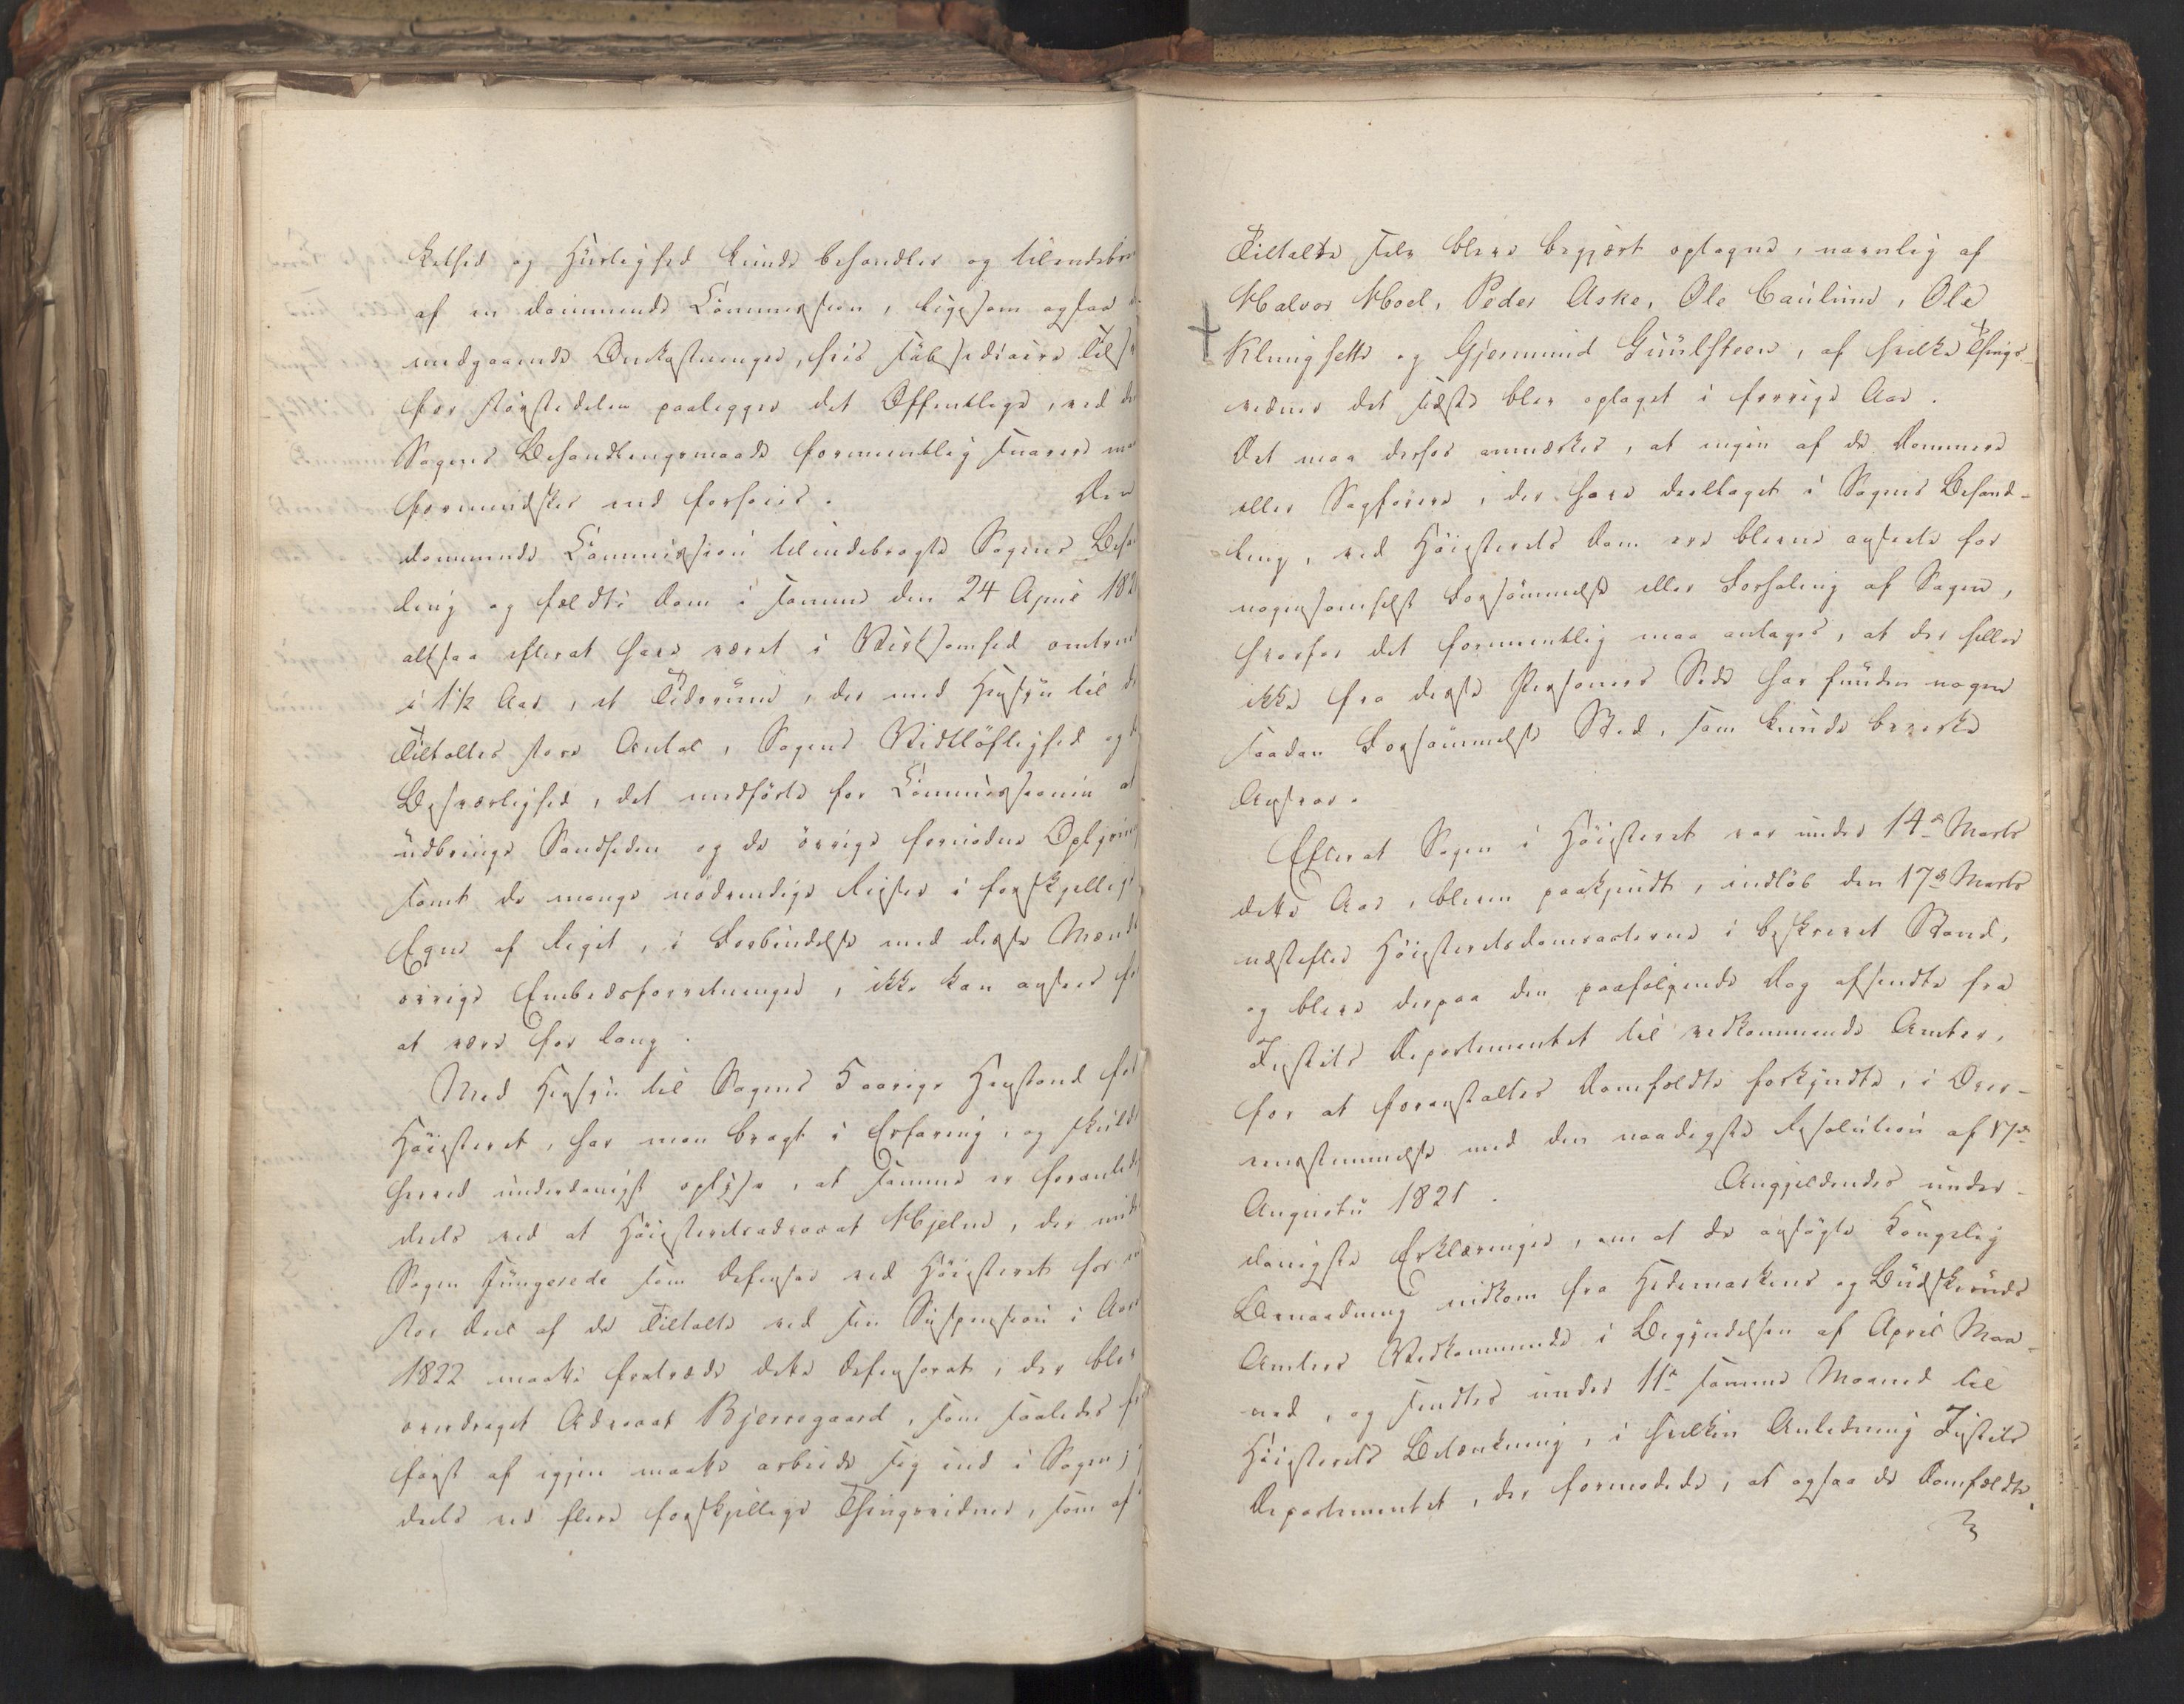 kelhed og Hurtighed kunde behandles og tilendebri
af en dømmende Commission, ligesom ogsaa d
medgaaende Omkostninger, hvis subsidiaire Tils
for størstedelen paaligger det Offentlige, ved de
Sagens Behandlingsmaade formeentlig snarere ma
formindsket end forhøiet. Den
dømmende Commission tilendebragte Sagens Beha
ling og fældte Dom i samme den 24 April 182
altsaa efterat have været i Virksomhed omtrent
i 1½ Aar, et Tidsrum, der med Hensyn til de
Tiltaltes store Antal, Sagens Vidtløftighed og d
Besværlighed, det medførte for Commissionen at
udbringe Sandheden og de øvrige fornødne Oplysni
samt de mange nødvendige Reiser i forskjellige
Egne af Riget, i Forbindelse med disse Mænds
øvrige Embedsforretninger, ikke kan ansees fo
at være for lang.
Med Hensyn til Sagens 5aarige Henstand for
Høiesteret, har man bragt i Erfaring, og skulde
herved underdanigst oplyse, at samme er foranledi
deels ved at Høiesteretsadvocat Hjelm, der under
Sagen fungerede som Defensor ved Høiesteret for en
stor Deel af de Tiltalte ved sin Suspension i Aar
1822 maatte fratræde dette Defensorat, der blev
overdraget Advocat Bjerregaard, som saaledes fr
først af igjen maatte arbeide sig ind i Sagen;
deels ved flere forskjellige Thingsvidner, som af
Tiltalte selv bleve begjært optagne, navnlig af
Halvor Hoel, Peder Aske, Ole Caulum, Ole
Klungsette og Gjermund Guulsteen, af hvilke Things-
vidner det sidste blev optaget i forrige Aar.
Det maa derfor anmærkes, at ingen af de Dommere
eller Sagførere, der have deeltaget i Sagens Behand-
ling, ved Høiesterets Dom ere blevne anseete for
nogensomhelst Forsømmelse eller Forhaling af Sagen,
hvorfor det formeentlig maa antages, at der heller
ikke fra disse Personers Side har funden nogen
saadan Forsømmelse Sted, som kunde bevirke
Ansvar.
Efterat Sagen i Høiesteret var under 14de Marts
dette Aar, bleven paakjendt, indløb den 17de Marts
næstefter Høiesteretsdomsacterne i beskrevet Stand,
og bleve derpaa den paafølgende Dag afsendte fra
Justits Departementet til vedkommende Amter,
for at foranstaltes Domfældte forkyndte, i Over-
eensstemmelse med den naadigste Resolution af 17de
Augustii 1821. Angjældendes under-
danigste Erklæringer, om at de ansøgte Kongelig
Benaadning indkom fra Hedemarkens og Budskeruds
Amters Vedkommende i Begyndelsen af April Maa-
ned, og sendtes under 11te samme Maaned til
Høiesterets Betænkning, i hvilken Anledning Justits
Departementet, der formodede, at ogsaa de Domfældte